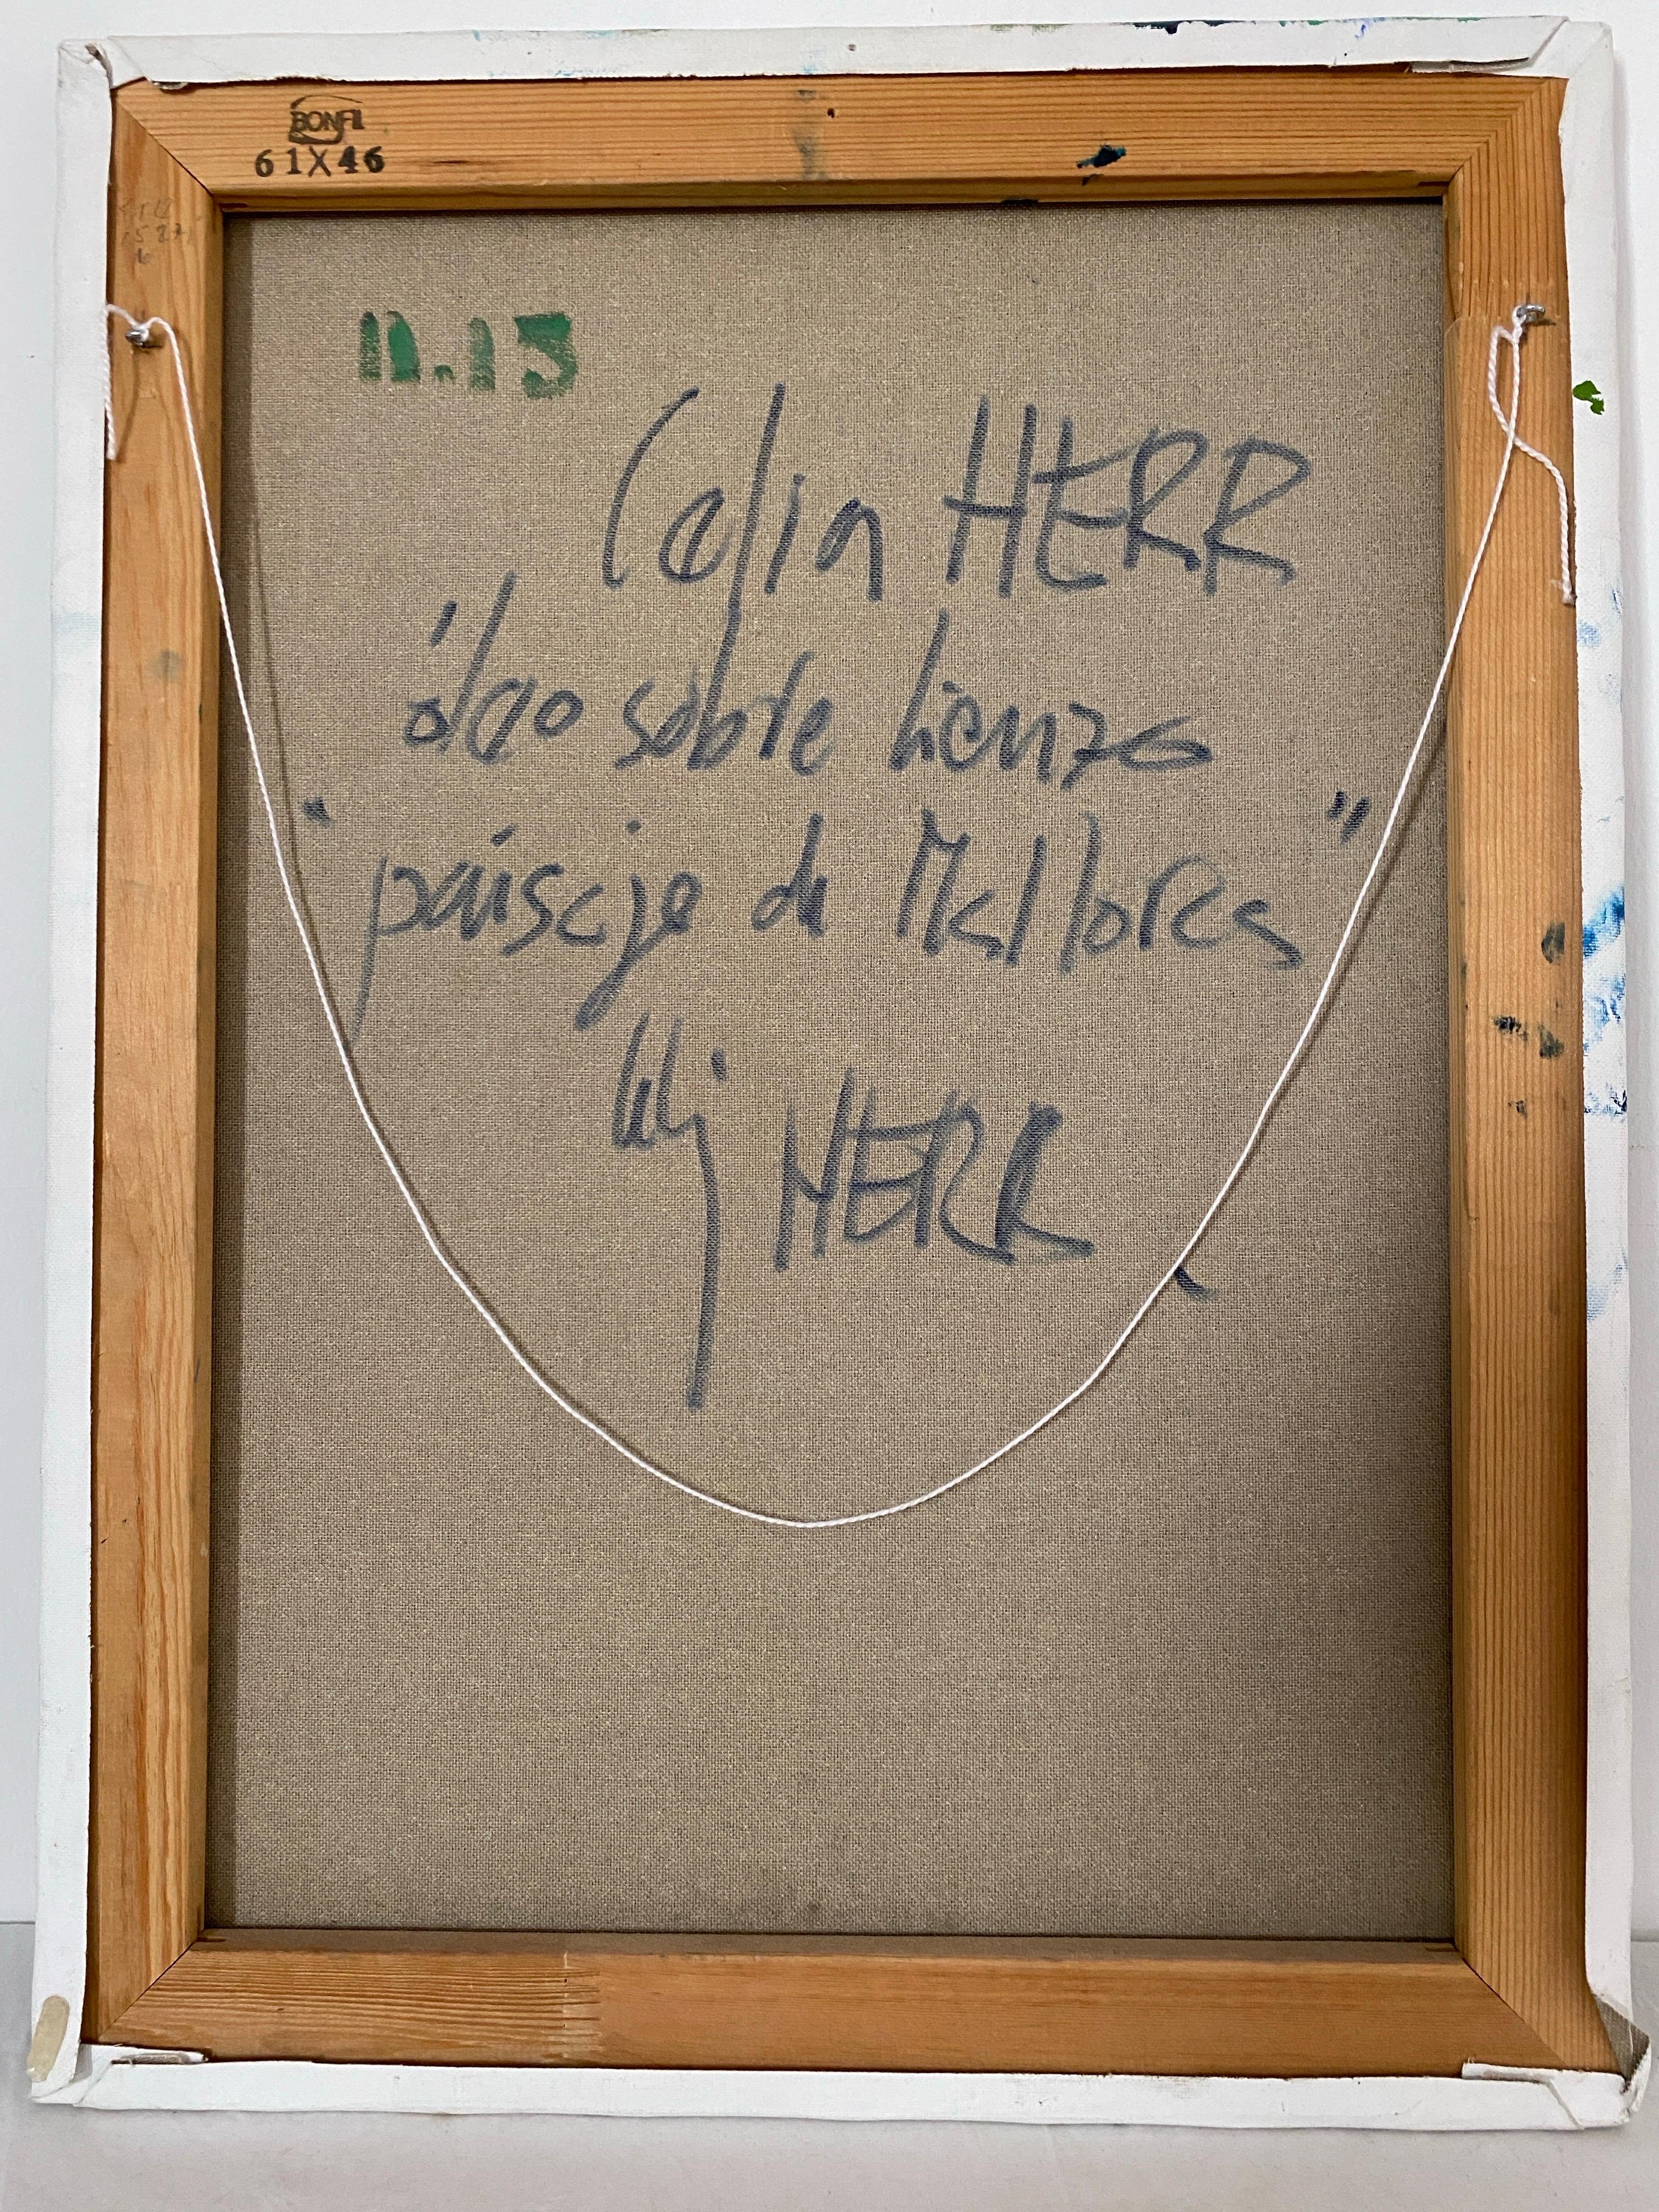 BONFIL
61X46
n.13
Celia HERR
óleo sobre lienzo
"paisaje de Mallorca"
HERR